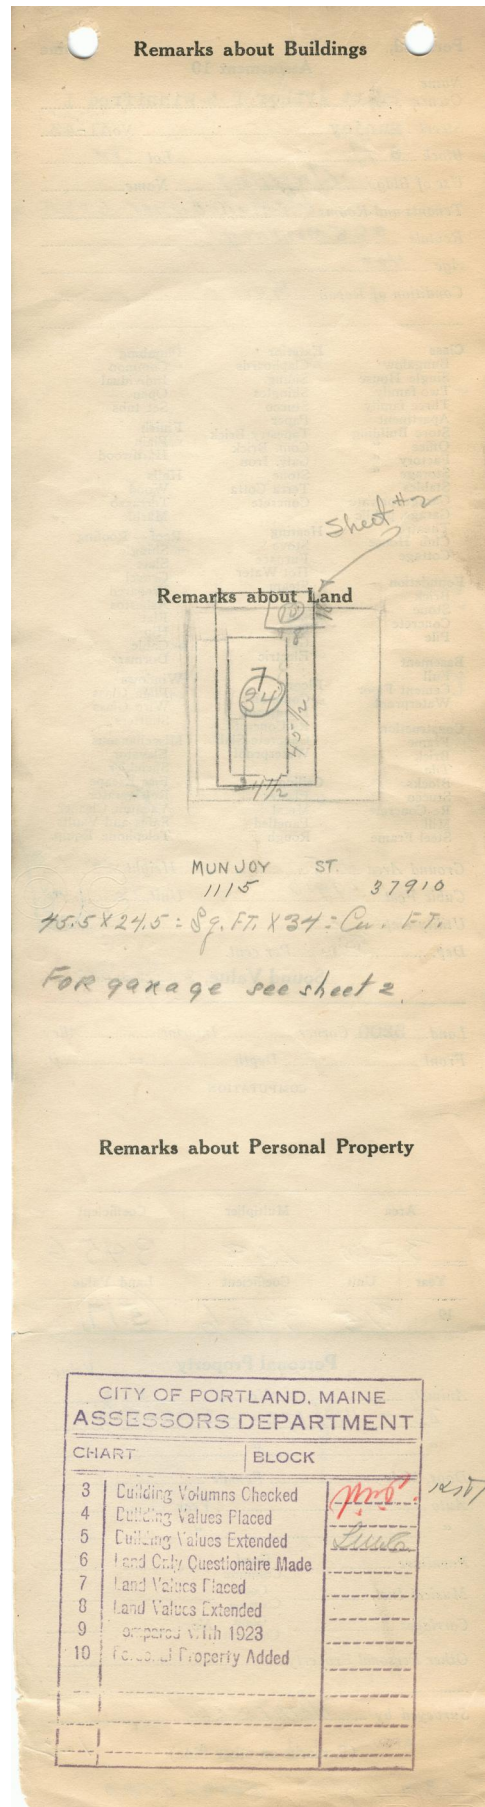 Remarks about Buildings
Sheet #2
Remarks about Land
7
34
45 1/2
24 1/2
MUNJOY ST.
1115 37910
45.5 X 24.5 = Sq. FT. X 34 = Cu. FT.
FOR garage see sheet 2
Remarks about Personal Property
CITY OF PORTLAND, MAINE
ASSESSORS DEPARTMENT
CHART BLOCK
3 Building Volumns Checked
4 Building Values Placed
5 Building Values Extended
6 Land Only Questionaire Made
7 Land Values Placed
8 Land Values Extended
9 Compared With 1923
10 Personal Property Added